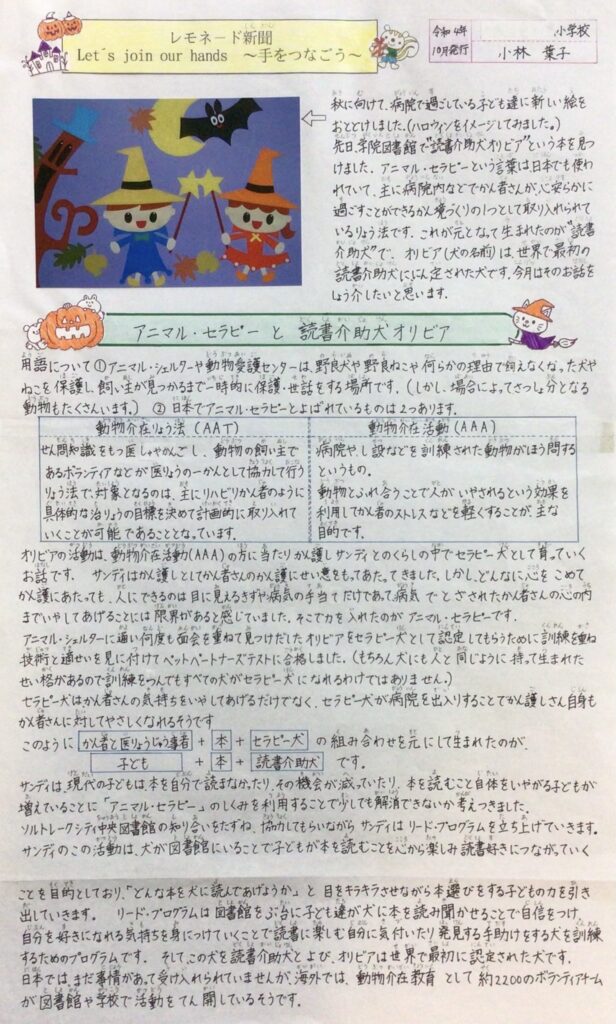 レモネード新聞
Let's join our hands ～手をつなごう～
令和4年
10月発行
小学校
小林 葉子
秋に向けて、病院で過ごしている子ども達に新しい絵を
おとどけしました。(ハロウィンをイメージしてみました。)
先日、学院図書館で"読書介助犬オリビア"という本を見つ
けました。アニマル・セラピーという言葉は日本でも使わ
れていて、主に病院内などでかん者さんが、心安らかに
過ごすことができるかん境づくりの1つとして取り入れられて
いるりょう法です。これが元となって生まれたのが"読書
介助犬"で、オリビア(犬の名前)は、世界で最初の
読書介助犬ににん定された犬です。今月はそのお話を
しょう介したいと思います。
アニマル・セラピーと読書介助犬オリビア
用語について①アニマル・シェルターや動物愛護センターは、野良犬や野良ねこや何らかの理由で飼えなくなった犬や
ねこを保護し、飼い主が見つかるまで一時的に保護・世話をする場所です。(しかし、場合によってさっしょ分となる
動物もたくさんいます。) ②日本でアニマル・セラピーとよばれているものは2つあります。
動物介在りょう法(AAT)
せん問知識をもつ医しゃやかんごし、動物の飼い主で
あるボランティアなどが医りょうの一かんとして協力して行う
りょう法で、対象となるのは、主にリハビリかん者のように
具体的な治りょうの目標を決めて計画的に取り入れて
いくことが可能であることとなっています。
動物介在活動(AAA)
病院やし設などを訓練された動物がほう問する
というもの。
動物とふれ合うことで人がいやされるという効果を
利用してかん者のストレスなどを軽くすることが、主な
目的です。
オリビアの活動は、動物介在活動(AAA)の方に当たりかん護しサンディとのくらしの中でセラピー犬として育っていく
お話です。 サンディはかん護しとしてかん者さんのかん護にせい意をもってあたってきました。しかし、どんなに心をこめて
かん護にあたっても、人にできるのは目に見えるきずや病気の手当てだけであって病気でとざされたかん者さんの心の内
までいやしてあげることには限界があると感じていました。そこで力を入れたのがアニマル・セラピーです。
アニマル・シェルターに通い何度も面会を重ねて見つけだしたオリビアをセラピー犬として認定してもらうために訓練を重ね
技術と適せいを見に付けてペットパートナーズテストに合格しました。(もちろん犬にも人と同じように持って生まれた
せい格があるので訓練をつんでもすべての犬がセラピー犬になれるわけではありません。)
セラピー犬はかん者の気持ちをいやしてあげるだけでなく、セラピー犬が病院を出入りすることでかん護しさん自身も
かん者さんに対してやさしくなれるそうです
このように かん者と医りょうじゅう事者 + 本 + セラピー犬 の組み合わせを元にして生まれたのが、
子ども + 本 + 読書介助犬 です。
サンディは現代の子どもは本を自分で読まなかったり、その機会が減っていたり、本を読むこと自体をいやがる子どもが
増えていることに「アニマル・セラピー」のしくみを利用することで少しでも解消できないか考えつきました。
ソルトレークシティ中央図書館の知り合いをたずね、協力してもらいながらサンディはリード・プログラムを立ち上げていきます。
サンディのこの活動は、犬が図書館にいることで子どもが本を読むことを心から楽しみ読書好きにつながっていく
ことを目的としており、「どんな本を犬に読んであげようか」と目をキラキラさせながら本選びをする子どもの力を引き
出していきます。 リード・プログラムは図書館をぶ台に子ども達が犬に本を読み聞かせることで自信をつけ、
自分を好きになれる気持ちを身につけていくことで読書に楽しむ自分に気付いたり発見する手助けをする犬を訓練
するためのプログラムです。 そして、この犬を読書介助犬とよび、オリビアは世界で最初に認定された犬です。
日本では、まだ事情があって受け入れられていませんが、海外では、動物介在教育として約2200のボランティアチーム
が図書館や学校で活動をてん開しているそうです。